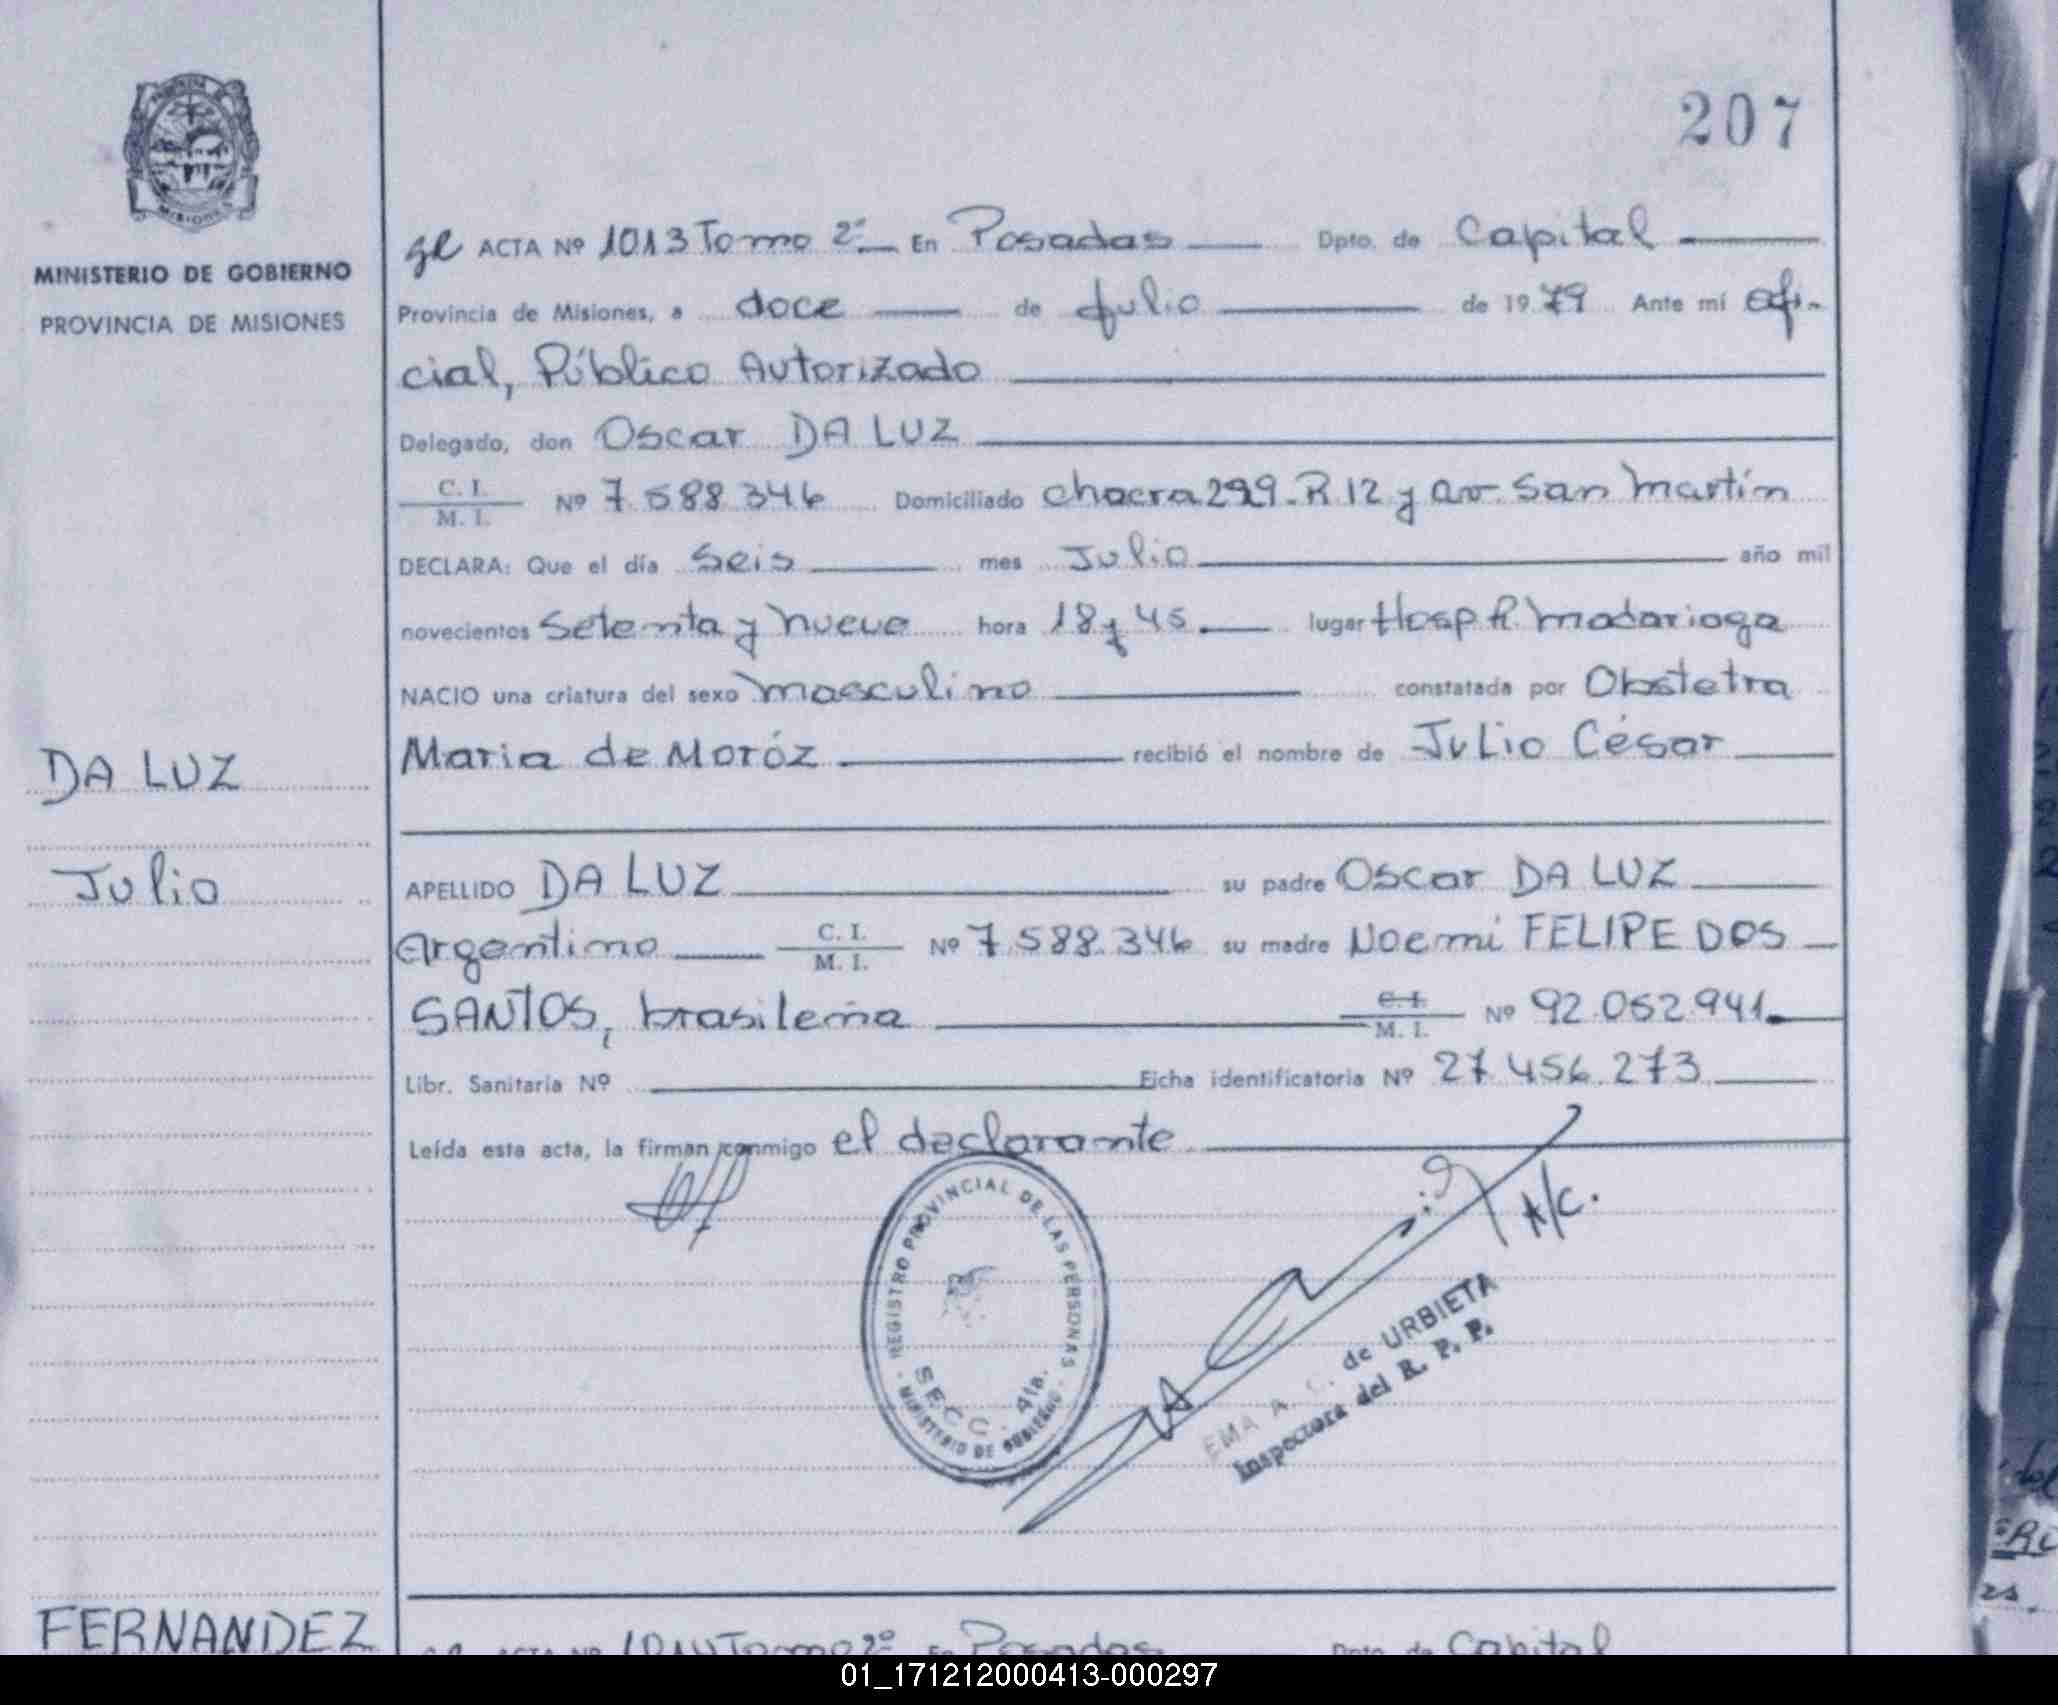 207
MISIONES
MINISTERIO DE GOBIERNO
PROVINCIA DE MISIONES
DA LUZ
Julio
ACTA Nº 1013 Tomo 2º En Posadas Dpto. de Capital
Provincia de Misiones, a doce de Julio de 1979 Ante mí ofi-
cial, Público Autorizado
Delegado, don Oscar DA LUZ
C. I. / M. I. Nº 7.588.346 Domiciliado chacra 299-R.12 y av. San Martín
DECLARA: Que el día Seis mes Julio año mil
novecientos Setenta y nueve hora 18 y 45 lugar Hosp R. Madariaga
NACIO una criatura del sexo masculino constatada por Obstetra
Maria de Moróz recibió el nombre de Julio César
APELLIDO DA LUZ su padre Oscar DA LUZ
Argentino C. I. / M. I. Nº 7.588.346 su madre Noemi FELIPE DOS
SANTOS, brasileña C. I. / M. I. Nº 92.052.941
Libr. Sanitaria Nº Ficha identificatoria Nº 27.456.273
Leída esta acta, la firman conmigo el declarante
A/C.
REGISTRO PROVINCIAL DE LAS PERSONAS
SECC. 4ta.
MINISTERIO DE GOBIERNO
EMA A. C. de URBIETA
Inspectora del R. P. P.
FERNANDEZ
ACTA Nº 1014 Tomo 2º En Posadas Dpto. de Capital
01_171212000413-000297